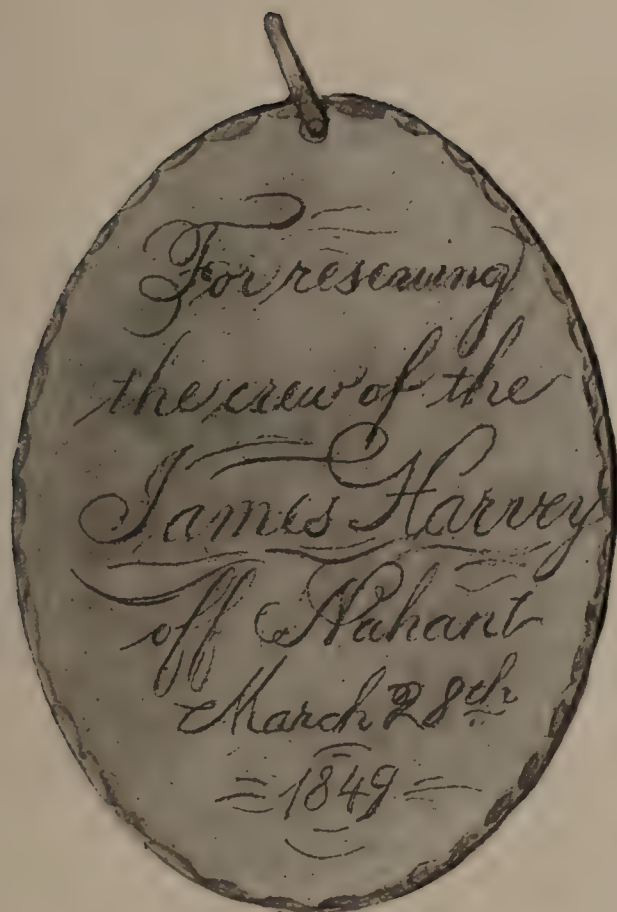 For rescuing
the crew of the
James Harvey
off Nahant
March 28th
1849